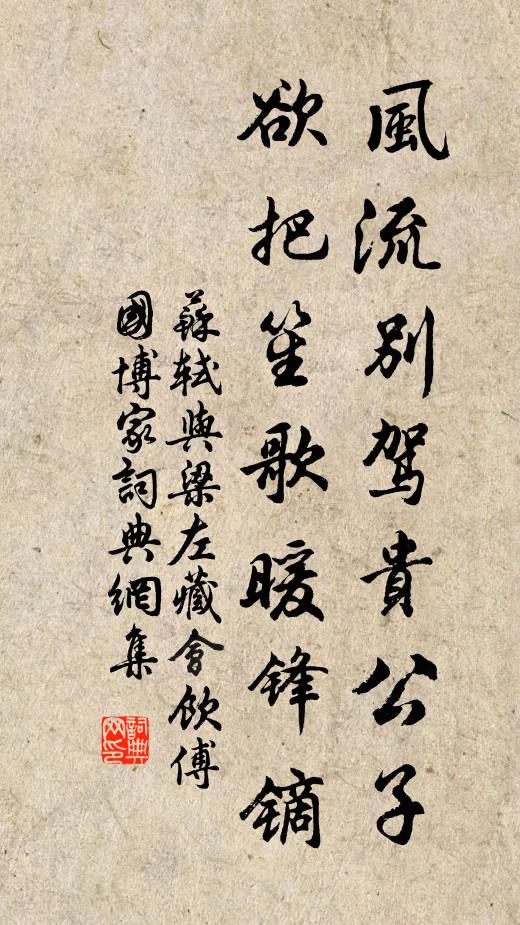 風流別駕貴公子
欲把笙歌暖锋镝
蘇軾與梁左藏會飲傅
國博家詞典網集
詞典
网印